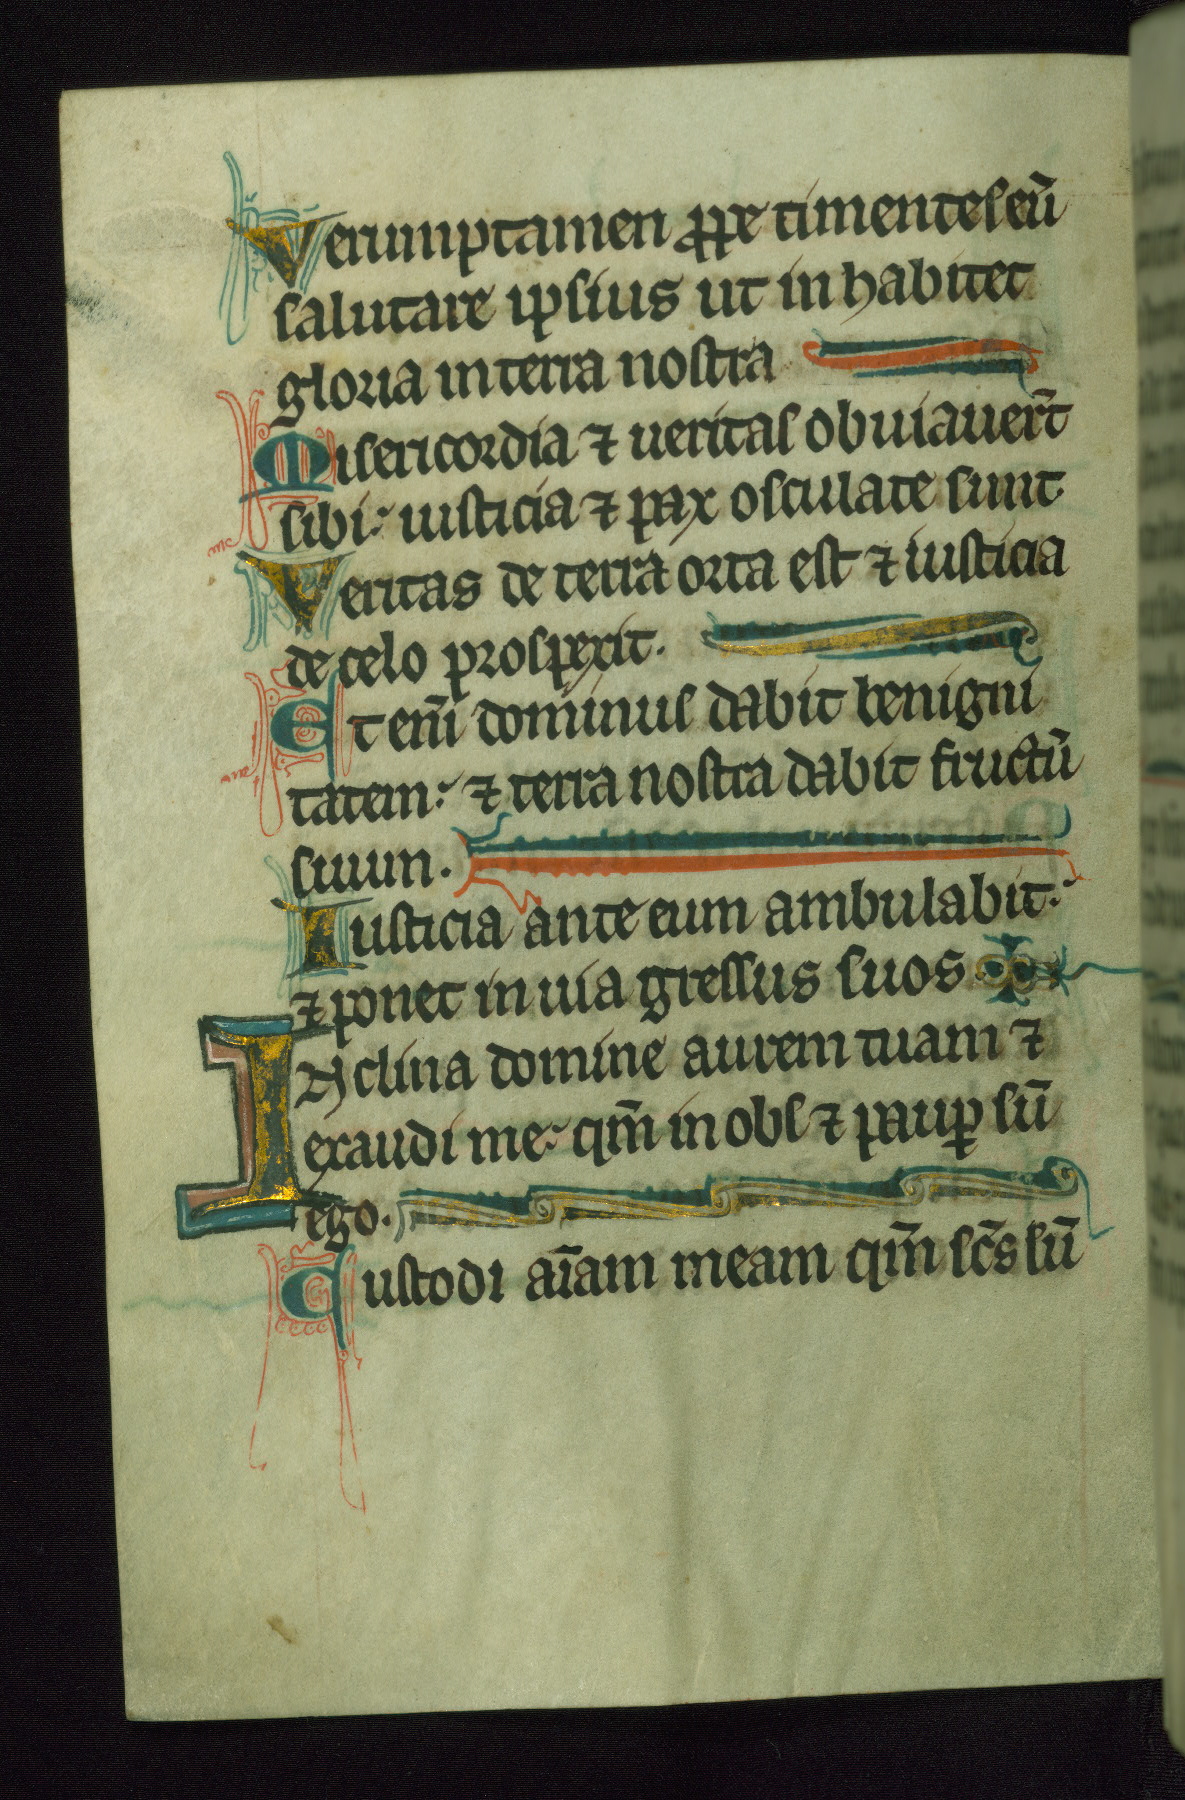 Verumptamen ꝓpe timentes eũ
salutare ipsius ut inhabitet
gloria in terra nostra
Misericordia ⁊ ueritas obuiauer̃t
sibi: iusticia ⁊ pax osculate sunt
Veritas de terra orta est ⁊ iusticia
de celo prospexit.
Et eni᷑ dominus dabit benigni
tatem: ⁊ terra nostra dabit fructũ
suum.
Iusticia ante eum ambulabit:
⁊ ponet in uia gressus suos
INclina domine aurem tuam ⁊
exaudi me: qm̃ inobs ⁊ pauꝑ sũ
ego.
Custodi aĩam meam qm̃ sc̃s sũ